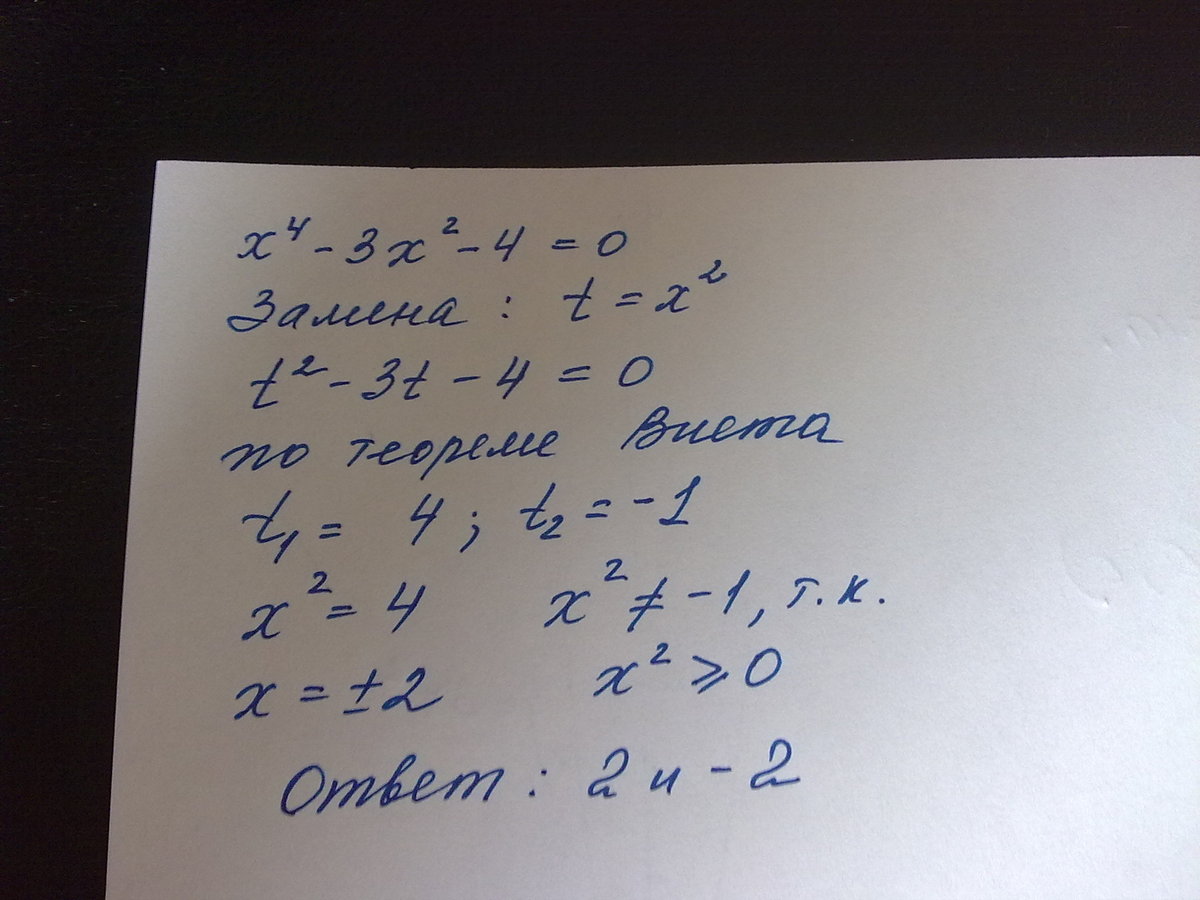 x⁴ - 3x² - 4 = 0
Замена : t = x²
t² - 3t - 4 = 0
по теореме Виета
t₁ = 4 ; t₂ = -1
x² = 4 x² ≠ -1, т.к.
x = ±2 x² ⩾ 0
Ответ : 2 и -2